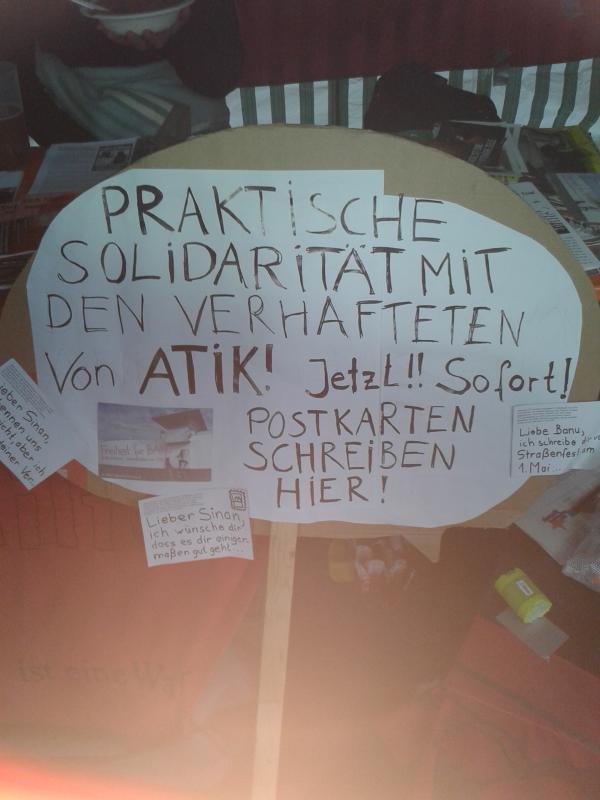 PRAKTISCHE
SOLIDARITÄT MIT
DEN VERHAFTETEN
Von ATIK! Jetzt!! Sofort!
POSTKARTEN
SCHREIBEN
HIER!
Freiheit für
Lieber Sinan,
ich wünsche dir,
dass es dir einiger
maßen gut geht...
Liebe Banu,
ich schreibe dir
Straßenfest am
1. Mai...
Lieber Sinan,
kennen uns
nicht aber ich
deiner
ist eine